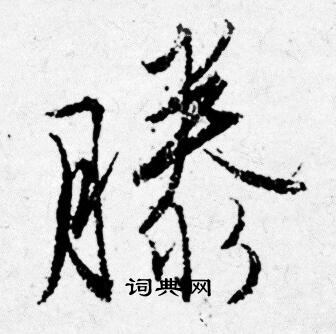 滕
词典网